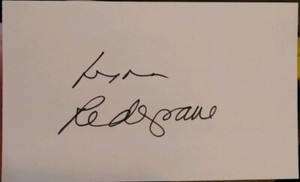 Lynn
Redgrave